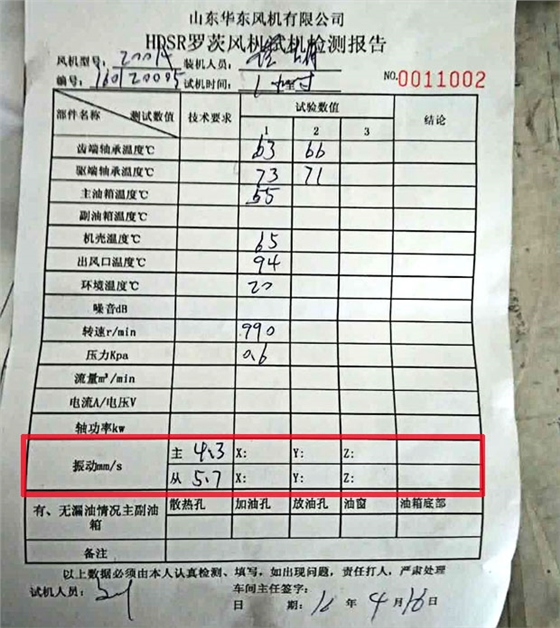 山东华东风机有限公司
HDSR罗茨风机试机检测报告
风机型号: 200A 装机人员:
编号: 160120005 试机时间: 1小时
NO.0011002
部件名称 测试数值 技术要求 试验数值 结论
1 2 3
齿端轴承温度℃ 63 66
驱端轴承温度℃ 73 71
主油箱温度℃ 65
副油箱温度℃
机壳温度℃ 65
出风口温度℃ 94
环境温度℃ 20
噪音dB
转速r/min 990
压力Kpa 0.6
流量m³/min
电流A/电压V
轴功率kw
振动mm/s 主 4.3 X: Y: Z:
从 5.7 X: Y: Z:
有、无漏油情况主副油箱 散热孔 加油孔 放油孔 油窗 油箱底部
备注
以上数据必须由本人认真检测、填写,如出现问题,责任打人,严肃处理
试机人员: 车间主任签字:
日 期: 16 年 4 月 16 日